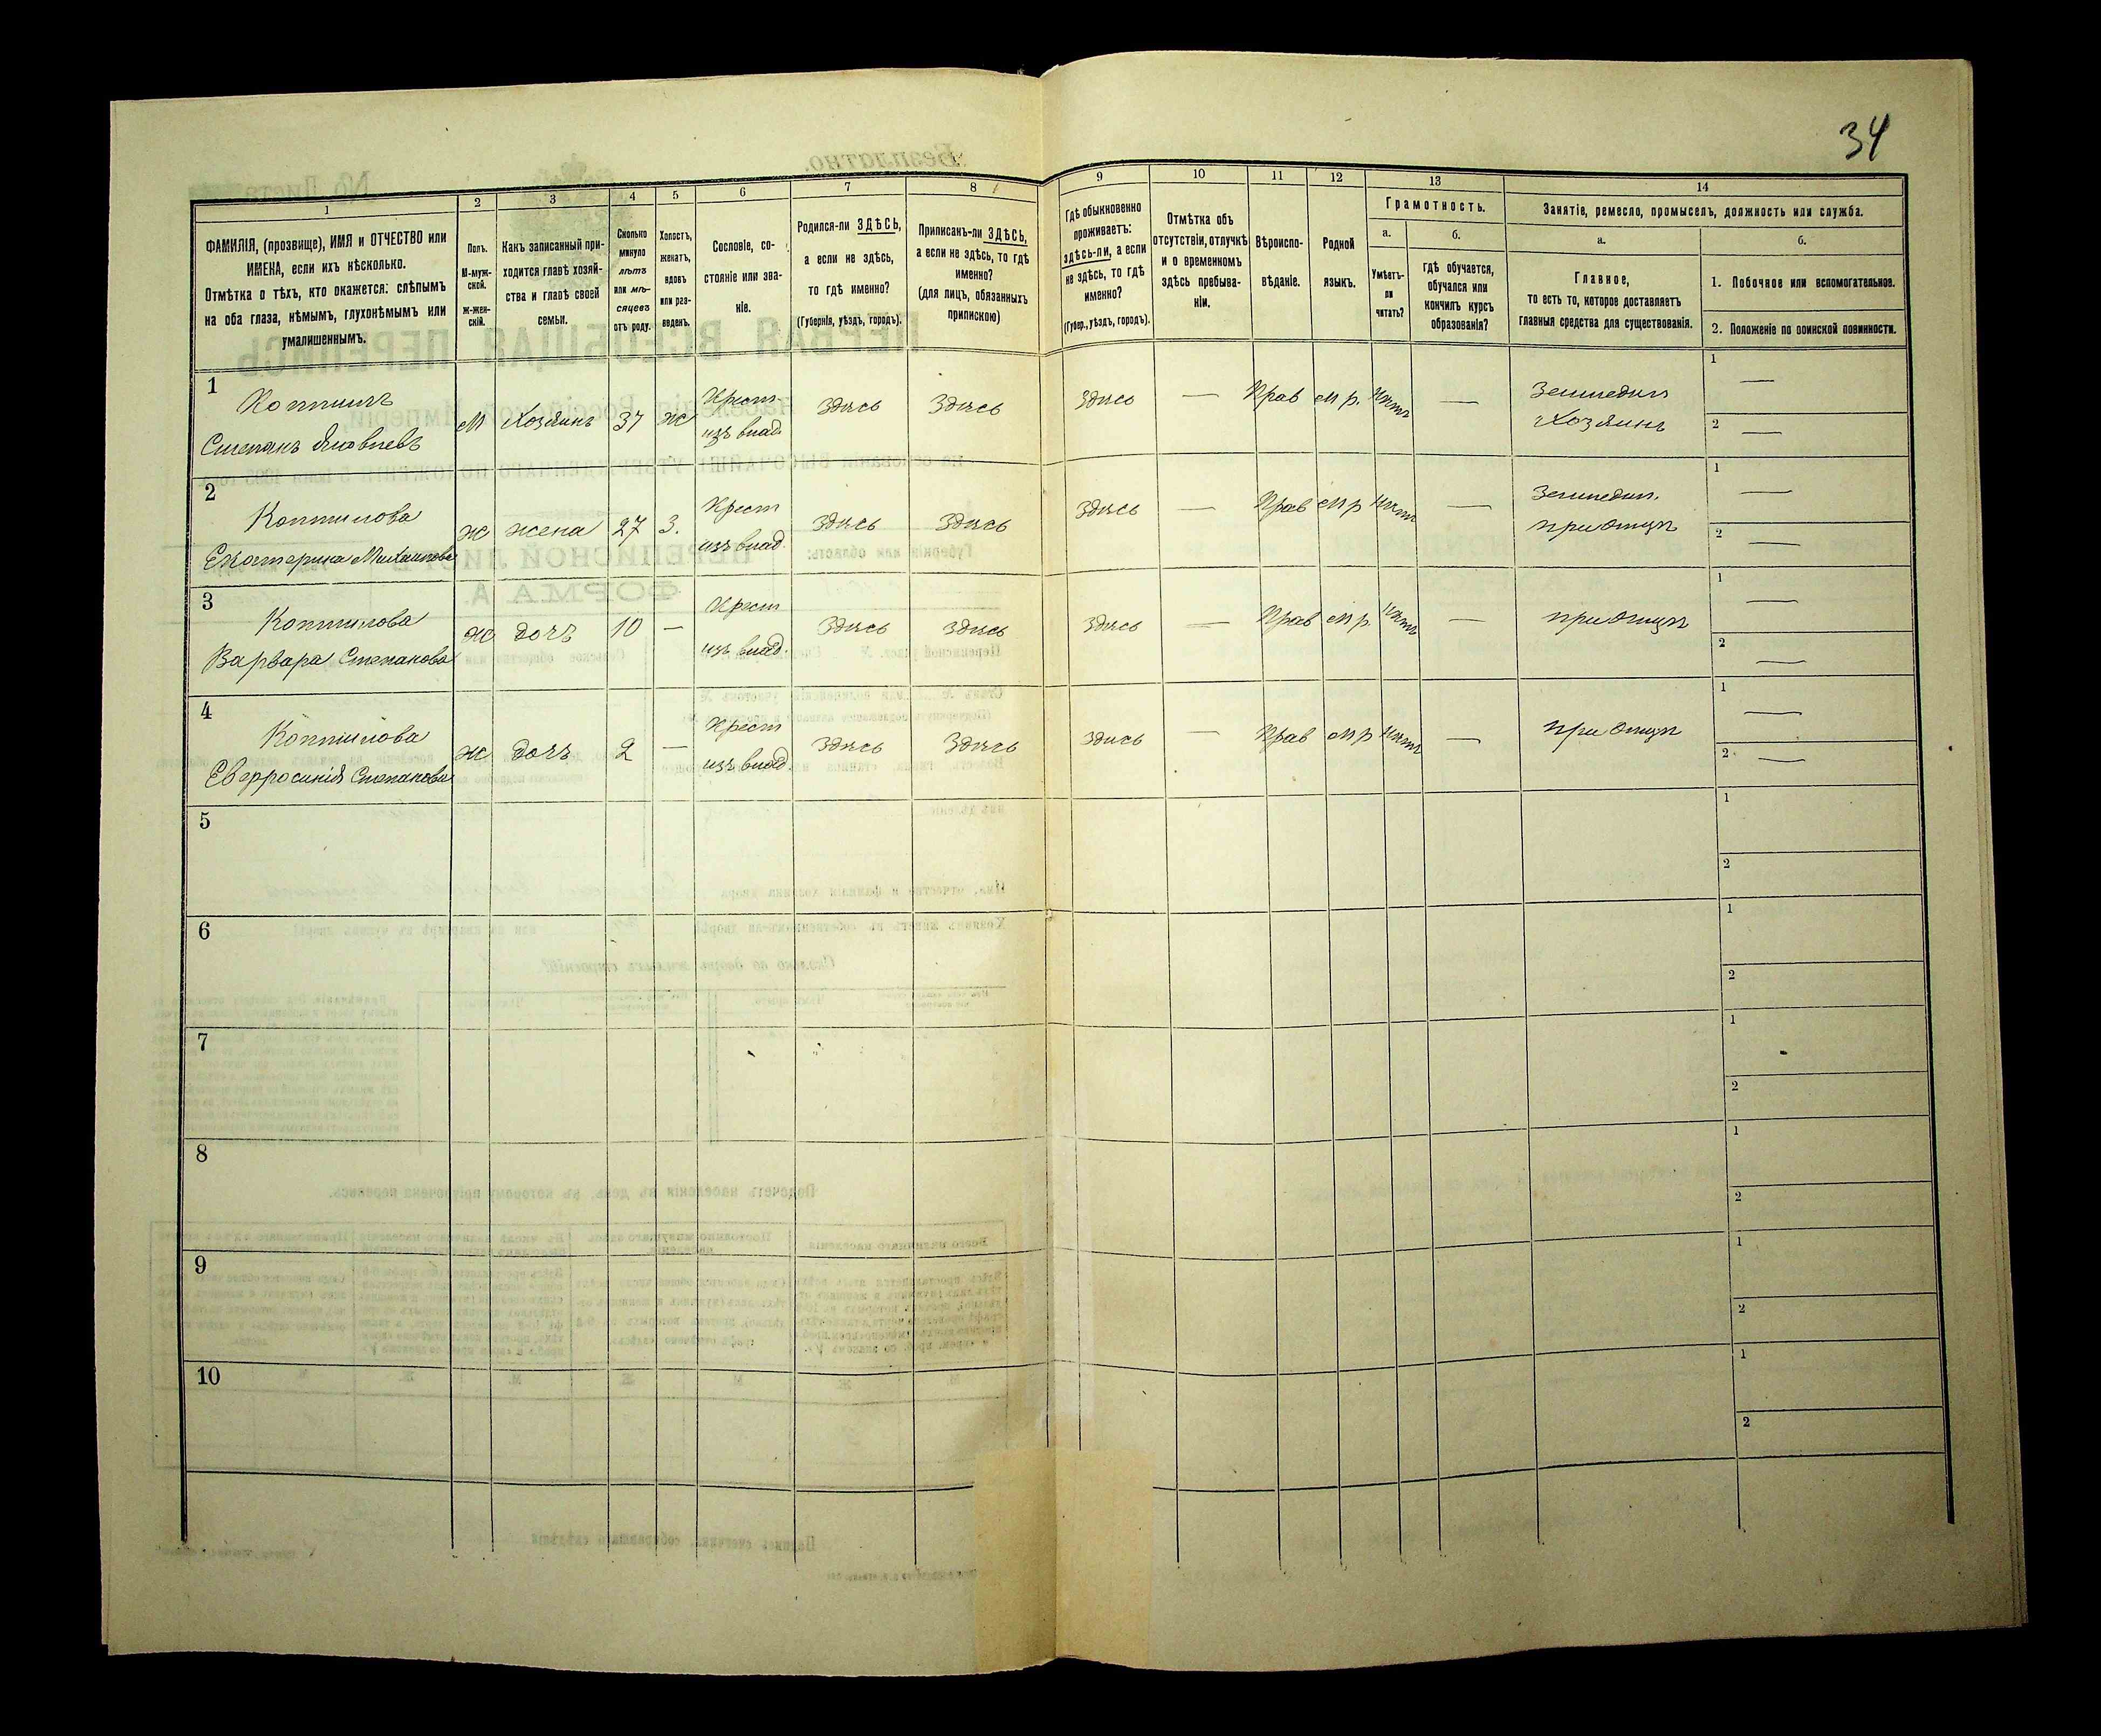 34
1
2
3
4
5
6
7
8
9
10
11
12
13
14
ФАМИЛІЯ, (прозвище), ИМЯ и ОТЧЕСТВО или
ИМЕНА, если ихъ нѣсколько.
Отмѣтка о тѣхъ, кто окажется: слѣпымъ
на оба глаза, нѣмымъ, глухонѣмымъ или
умалишеннымъ.
Полъ.
М-муж-
ской.
Ж-жен-
скій.
Какъ записанный при-
ходится главѣ хозяй-
ства и главѣ своей
семьи.
Сколько
минуло
лѣтъ
или мѣ-
сяцевъ
отъ роду.
Холостъ,
женатъ,
вдовъ
или раз-
веденъ.
Сословіе, со-
стояніе или зва-
ніе.
Родился-ли ЗДѢСЬ,
а если не здѣсь,
то гдѣ именно?
(Губернія, уѣздъ, городъ).
Приписанъ-ли ЗДѢСЬ,
а если не здѣсь, то гдѣ
именно?
(для лицъ, обязанныхъ
припискою)
Гдѣ обыкновенно
проживаетъ:
здѣсь-ли, а если
не здѣсь, то гдѣ
именно?
(Губер., уѣздъ, городъ).
Отмѣтка объ
отсутствіи, отлучкѣ
и о временномъ
здѣсь пребыва-
ніи.
Вѣроиспо-
вѣданіе.
Родной
языкъ.
Грамотность.
а.
Умѣетъ-
ли
читать?
б.
Гдѣ обучается,
обучался или
кончилъ курсъ
образованія?
Занятіе, ремесло, промыселъ, должность или служба.
а.
Главное,
то есть то, которое доставляетъ
главныя средства для существованія.
б.
1. Побочное или вспомогательное.
2. Положеніе по воинской повинности.
1
Степанъ Яковлевъ
М Хозяинъ 37 Ж
Крест.
изъ влад.
Здѣсь Здѣсь Здѣсь — Прав М р. Нѣтъ —
Земледѣл
Хозяинъ
1 —
2 —
2
Коптилова
Екатерина Михаилова
Ж жена 27 З.
Крест
изъ влад.
Здѣсь Здѣсь Здѣсь — Прав М р Нѣтъ —
Земледѣл.
при отцѣ
1 —
2 —
3
Коптилова
Варвара Степанова
Ж дочь 10 —
Крест
изъ влад.
Здѣсь Здѣсь Здѣсь — Прав М р. Нѣтъ —
при отцѣ
1 —
2 —
4
Коптилова
Степанова
Ж дочь 2 —
Крест
изъ влад.
Здѣсь Здѣсь Здѣсь — Прав М р Нѣтъ —
при отцѣ
1 —
2 —
5
1
2
6
1
2
7
1
2
8
1
2
9
1
2
10
1
2